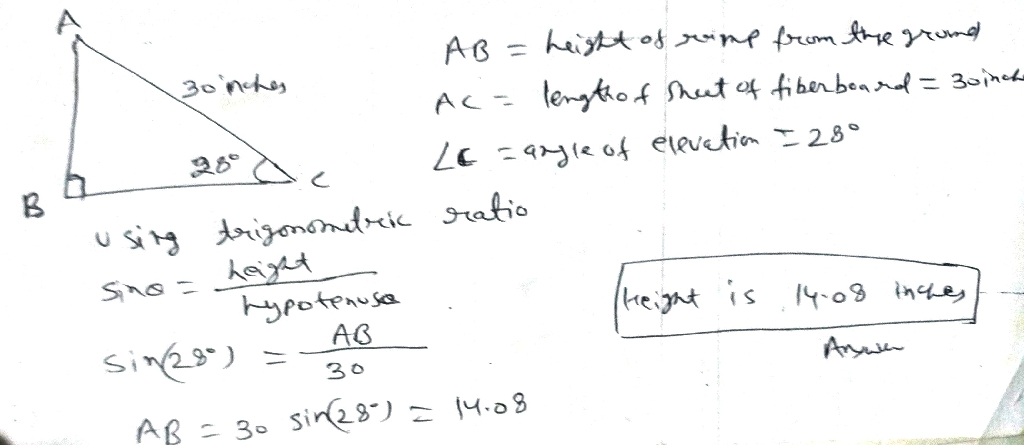 A
30 inches
28°
B
C
AB = height of ramp from the ground
AC = length of sheet of fiberboard = 30 inch
∠C = angle of elevation = 28°
using trigonometric ratio
sinθ = height / hypotenuse
sin(28°) = AB / 30
AB = 30 sin(28°) = 14.08
Height is 14.08 inches
Answer